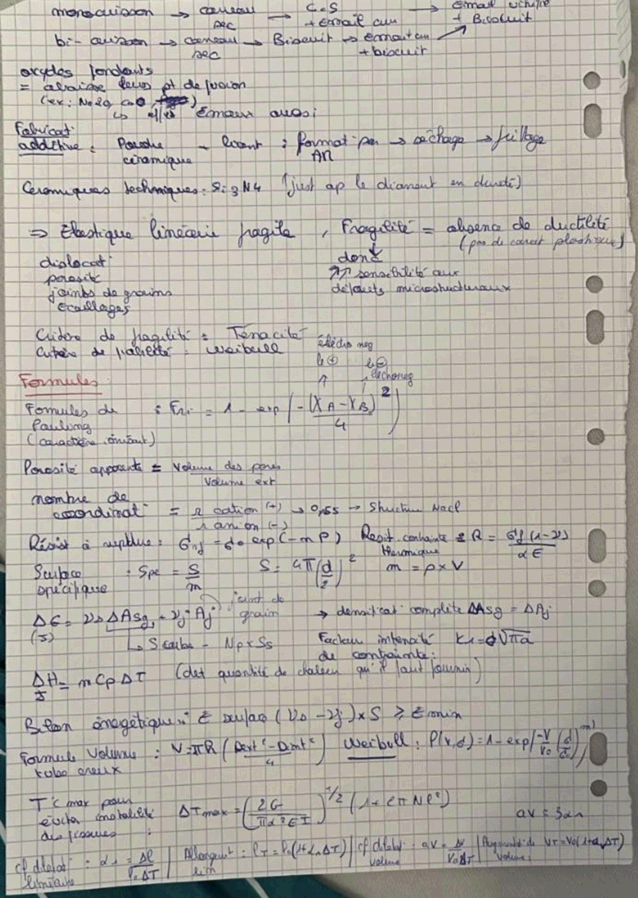 monocuisson → carreau sec → C.S + Email cru → Email vitrifié + Biscuit
bi-cuisson → carreau sec → Biscuit → email cru + biscuit
oxydes fondants
= abaisse leurs pt de fusion
(ex: Na2O, CaO,
Emaux aussi
Fabricat° additive : Poudre céramique - liant : format° par AR → séchage → frittage
Céramiques techniques : Si3N4 (just ap le diamant en dureté)
⇒ Elastique linéaire fragile , Fragilité = absence de ductilité
(pas de caract plastique)
dislocat°
donc
porosité
↗↗ sensibilité aux
joints de grains
défauts microstructuraux
écaillages
Critère de fragilité : Ténacité
Critère de fiabilité : Weibull
électro neg
le ⊕ le ⊖
électroneg
Formules
Formules de Pauling : Fri = 1 - exp(-(XA-XB)²/4)
(caractère ionisant)
Porosité apparente = Volume des pores / Volume ext
nombre de coordinat° = r cation (+) / r anion (-) → 0,65 → Structure NaCl
Résist à rupture : σrf = σ0 exp(-nP) Resist. contrainte thermique : R = σf(1-ν)/αE
Surface spécifique : Spé = S/m S = 4π(d/2)² m = ρ×V
joint de grain
ΔG = γs ΔAsg + γj Aj → densificat° complète ΔAsg = ΔAj
(J)
↳ S carbo - Np×Ss Facteur intensité de contrainte : K1 = σ√πa
ΔH = m Cp ΔT (det quantité de chaleur qu'il faut fournir)
J
Bilan énergétique : E surface (γs - γj) × S ≥ E min
Formule Volume tube creux : V = πR(Dext² - Dint²/4) Weibull : P(V,σ) = 1 - exp[-V/V0 (σ/σ0)^m]
T°C max pour éviter instabilité des fissures : ΔTmax = (2G/πα²EI)^1/2 (1 + 2πNl²)
αV = 3αl
Cf dilatat° linéaire : αl = Δl/l0ΔT | Allongement lin : lT = l0(1+αlΔT) | cf dilatat° volume : αV = ΔV/V0ΔT | Augmentat° de volume : VT = V0(1+αVΔT)